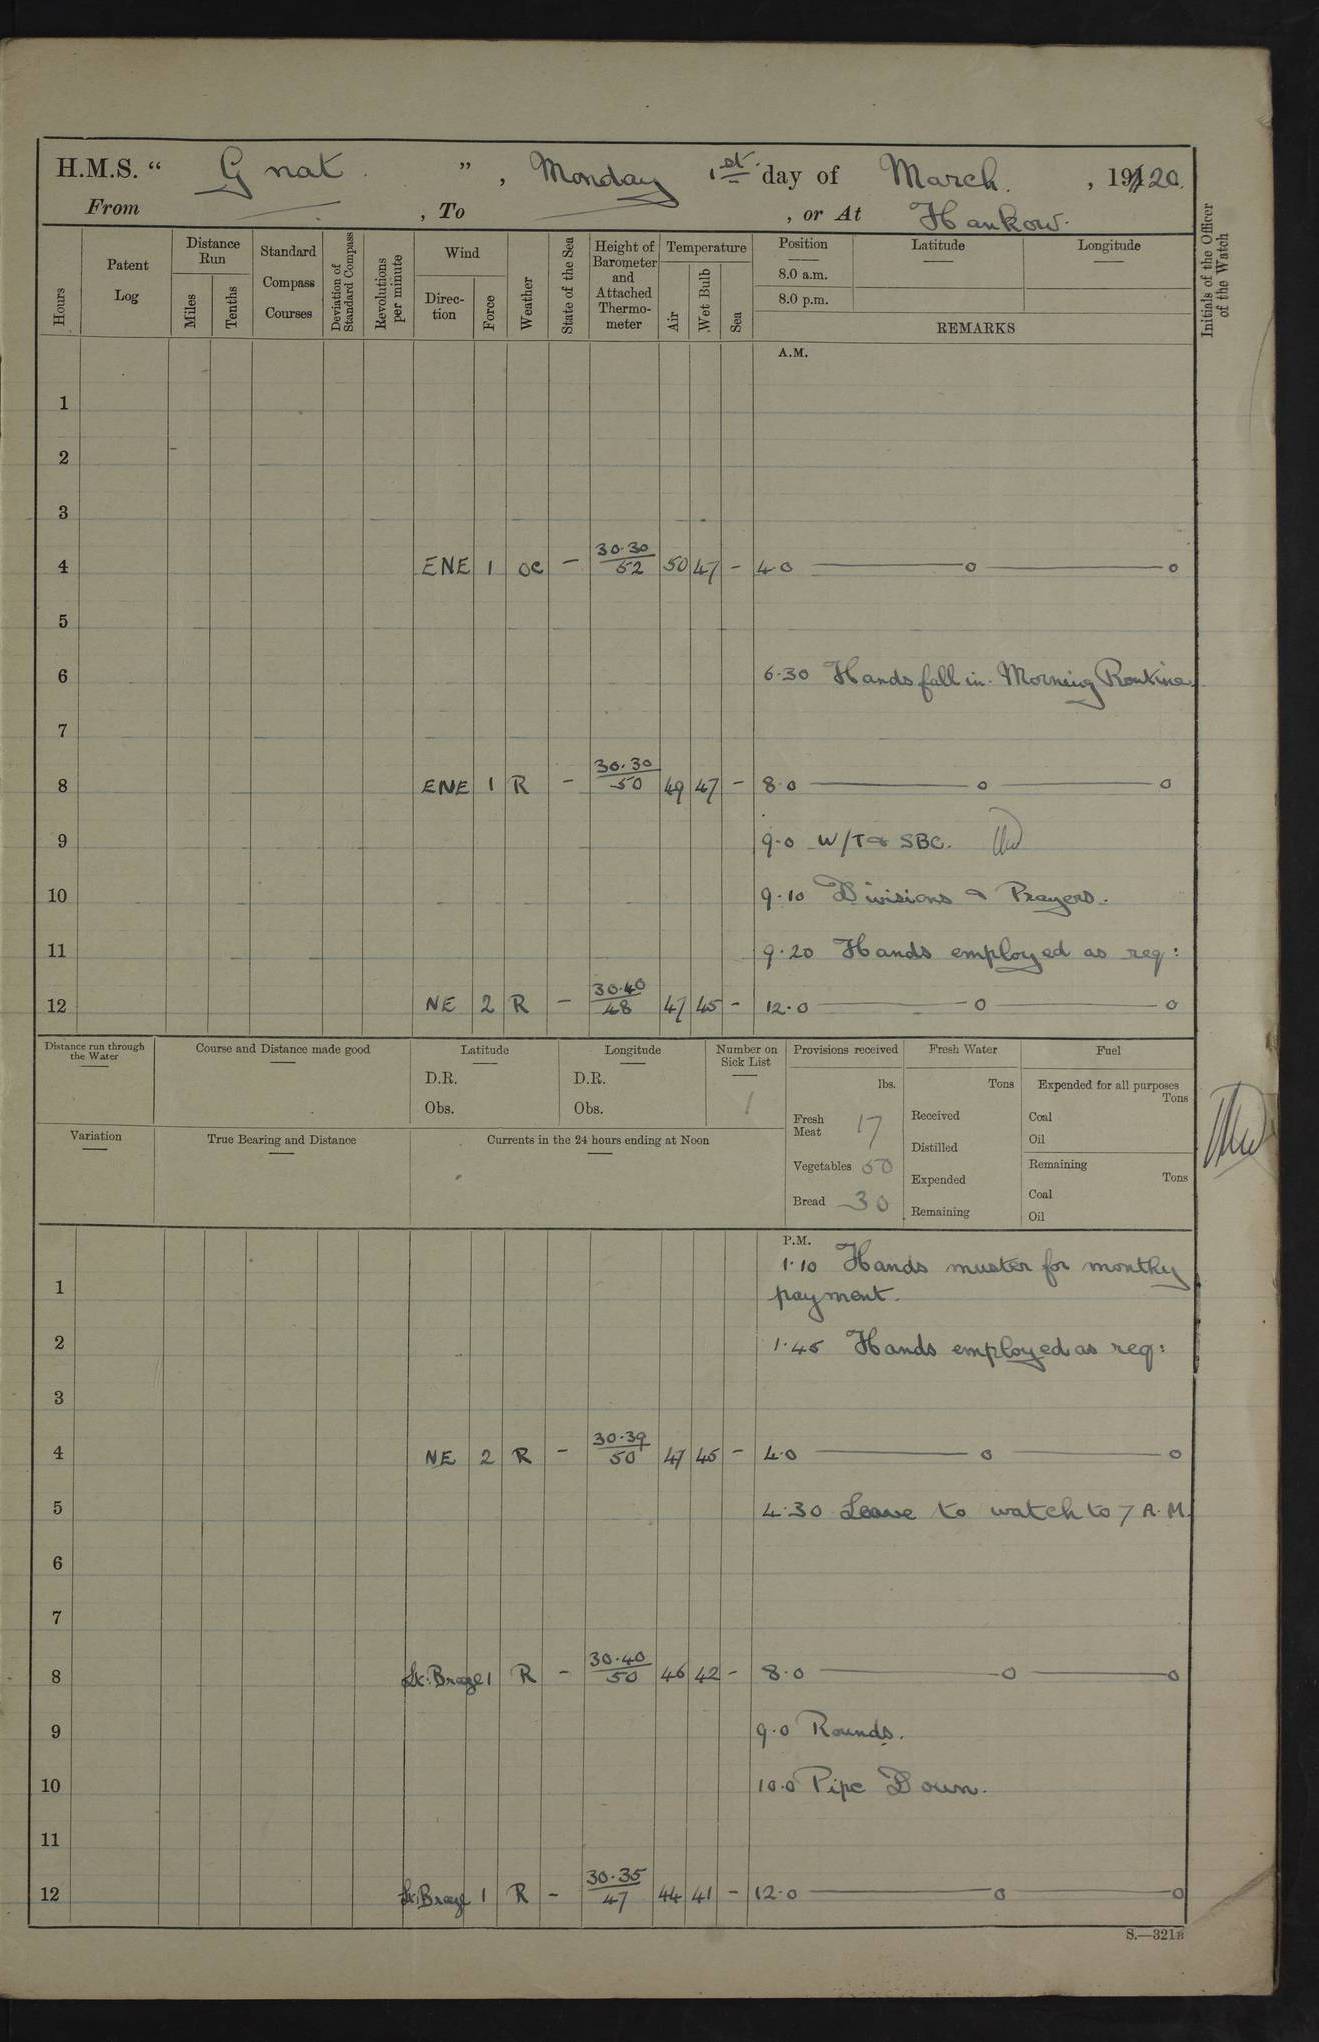 H.M.S. “ Gnat. ” , Monday 1st day of March. , 1920.
From — , To — , or At Hankow.
Hours
Patent Log
Distance Run
Miles
Tenths
Standard Compass Courses
Deviation of Standard Compass
Revolutions per minute
Wind
Direc-tion
Force
Weather
State of the Sea
Height of Barometer and Attached Thermo-meter
Temperature
Air
Wet Bulb
Sea
Position
8.0 a.m.
8.0 p.m.
Latitude
Longitude
REMARKS
Initials of the Officer of the Watch
A.M.
1
2
3
4 ENE 1 oc – 30.30/52 50 47 – 4.0 —— o —— o
5
6 6.30 Hands fall in. Morning Routine.
7
8 ENE 1 R – 30.30/50 49 47 – 8.0 —— o —— o
9 9.0 W/T & SBC.
10 9.10 Divisions & Prayers.
11 9.20 Hands employed as req:
12 NE 2 R – 30.40/48 47 45 – 12.0 —— o —— o
Distance run through the Water
Course and Distance made good
Latitude
D.R.
Obs.
Longitude
D.R.
Obs.
Number on Sick List
1
Variation
True Bearing and Distance
Currents in the 24 hours ending at Noon
Provisions received
lbs.
Fresh Meat 17
Vegetables 50
Bread 30
Fresh Water
Tons
Received
Distilled
Expended
Remaining
Fuel
Expended for all purposes
Tons
Coal
Oil
Remaining
Tons
Coal
Oil
P.M.
1.10 Hands muster for monthly
1 payment.
2 1.45 Hands employed as req:
3
4 NE 2 R – 30.39/50 47 45 – 4.0 —— o —— o
5 4.30 Leave to watch to 7 A.M.
6
7
8 Lt: Breze 1 R – 30.40/50 46 42 – 8.0 —— o —— o
9 9.0 Rounds.
10 10.0 Pipe Down.
11
12 Lt: Breze 1 R – 30.35/47 44 41 – 12.0 —— o —— o
S.—321B